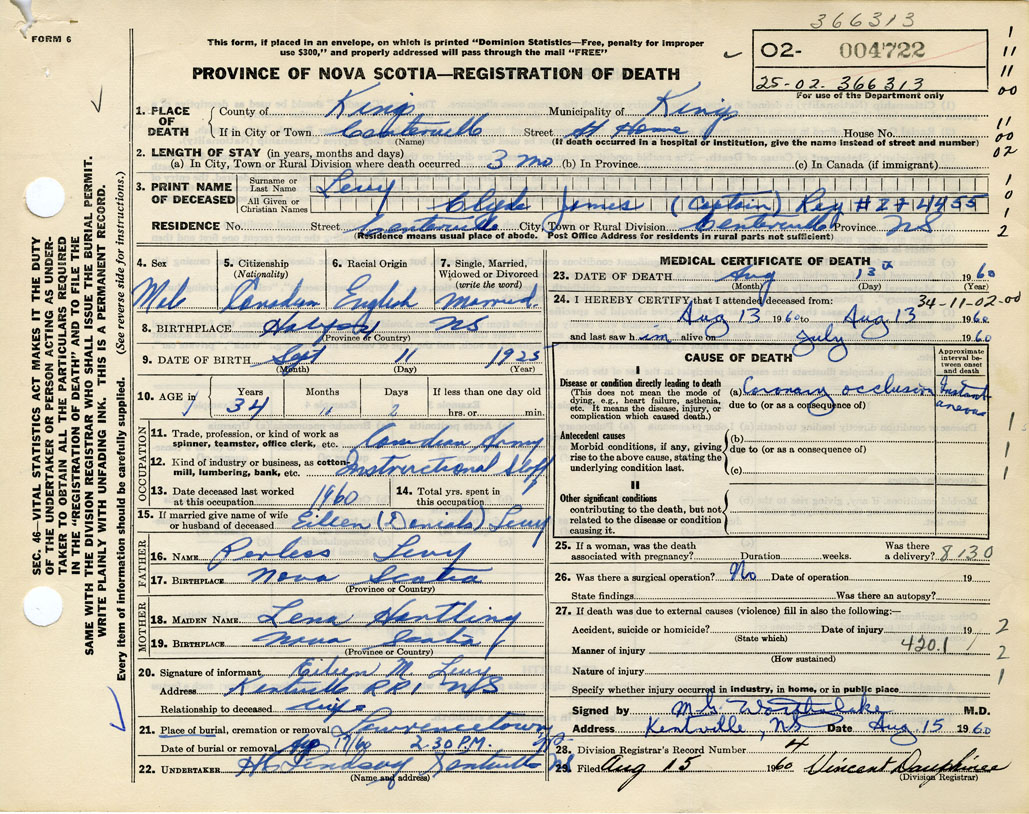 366313
FORM 6
This form, if placed in an envelope, on which is printed "Dominion Statistics—Free, penalty for improper
use $300," and properly addressed will pass through the mail "FREE"
02- 004722
25-02-366313
For use of the Department only
PROVINCE OF NOVA SCOTIA—REGISTRATION OF DEATH
1. PLACE OF DEATH County of Kings Municipality of Kings
If in City or Town Centerville Street At Home House No.
(Name) (If death occurred in a hospital or institution, give the name instead of street and number)
2. LENGTH OF STAY (in years, months and days)
(a) In City, Town or Rural Division where death occurred 3 mo (b) In Province (c) In Canada (if immigrant)
3. PRINT NAME OF DECEASED Surname or Last Name Levy
All Given or Christian Names Clyde James (Captain) Reg # ZF4455
RESIDENCE No. Street Centerville City, Town or Rural Division Centerville Province NS
(Residence means usual place of abode. Post Office Address for residents in rural parts not sufficient)
4. Sex 5. Citizenship (Nationality) 6. Racial Origin 7. Single, Married, Widowed or Divorced (write the word)
Male Canadian English Married
8. BIRTHPLACE Halifax NS
(Province or Country)
9. DATE OF BIRTH Sept 11 1925
(Month) (Day) (Year)
10. AGE in Years Months Days If less than one day
34 11 2 hrs. or min.
OCCUPATION
11. Trade, profession, or kind of work as spinner, teamster, office clerk, etc. Canadian Army
12. Kind of industry or business, as cotton-mill, lumbering, bank, etc. Instructional Staff
13. Date deceased last worked at this occupation 1960 14. Total yrs. spent in this occupation
15. If married give name of wife or husband of deceased Eileen (Daniels) Levy
FATHER
16. NAME Perless Levy
17. BIRTHPLACE Nova Scotia
(Province or Country)
MOTHER
18. MAIDEN NAME Lena Hartling
19. BIRTHPLACE Nova Scotia
(Province or Country)
20. Signature of informant Eileen M. Levy
Address Kentville RR1 NS
Relationship to deceased Wife
21. Place of burial, cremation or removal Lawrencetown
Date of burial or removal Aug 17/60 2.30 P.M. NS
22. UNDERTAKER Lindsay Kentville NS
(Name and address)
MEDICAL CERTIFICATE OF DEATH
23. DATE OF DEATH Aug 13th 1960
(Month) (Day) (Year)
24. I HEREBY CERTIFY, that I attended deceased from: 34-11-02-00
Aug 13 1960 to Aug 13 1960
and last saw him alive on July 1960
CAUSE OF DEATH
Approximate interval between onset and death
I
Disease or condition directly leading to death (a) Coronary occlusion Instantaneous
(This does not mean the mode of dying, e.g., heart failure, asthenia, etc. It means the disease, injury, or complication which caused death.)
due to (or as a consequence of)
Antecedent causes (b)
Morbid conditions, if any, giving rise to the above cause, stating the underlying condition last.
due to (or as a consequence of)
(c)
II
Other significant conditions
contributing to the death, but not related to the disease or condition causing it.
25. If a woman, was the death associated with pregnancy? Duration weeks. Was there a delivery? 8130
26. Was there a surgical operation? No Date of operation 19
State findings Was there an autopsy?
27. If death was due to external causes (violence) fill in also the following:—
Accident, suicide or homicide? Date of injury 19
(State which)
Manner of injury 420.1
(How sustained)
Nature of injury
Specify whether injury occurred in industry, in home, or in public place
Signed by M.D.
Address Kentville, NS Date Aug 15 1960
28. Division Registrar's Record Number 4
29. Filed Aug 15 1960 Vincent Dauphinee
(Division Registrar)
SEC. 46—VITAL STATISTICS ACT MAKES IT THE DUTY
OF THE UNDERTAKER OR PERSON ACTING AS UNDER-
TAKER TO OBTAIN ALL THE PARTICULARS REQUIRED
IN THE "REGISTRATION OF DEATH" AND TO FILE THE
SAME WITH THE DIVISION REGISTRAR WHO SHALL ISSUE THE BURIAL PERMIT.
WRITE PLAINLY WITH UNFADING INK. THIS IS A PERMANENT RECORD.
Every item of information should be carefully supplied. (See reverse side for instructions.)
1
11
11
00
11
00
02
1
0
1
2
1
1
1
2
2
1